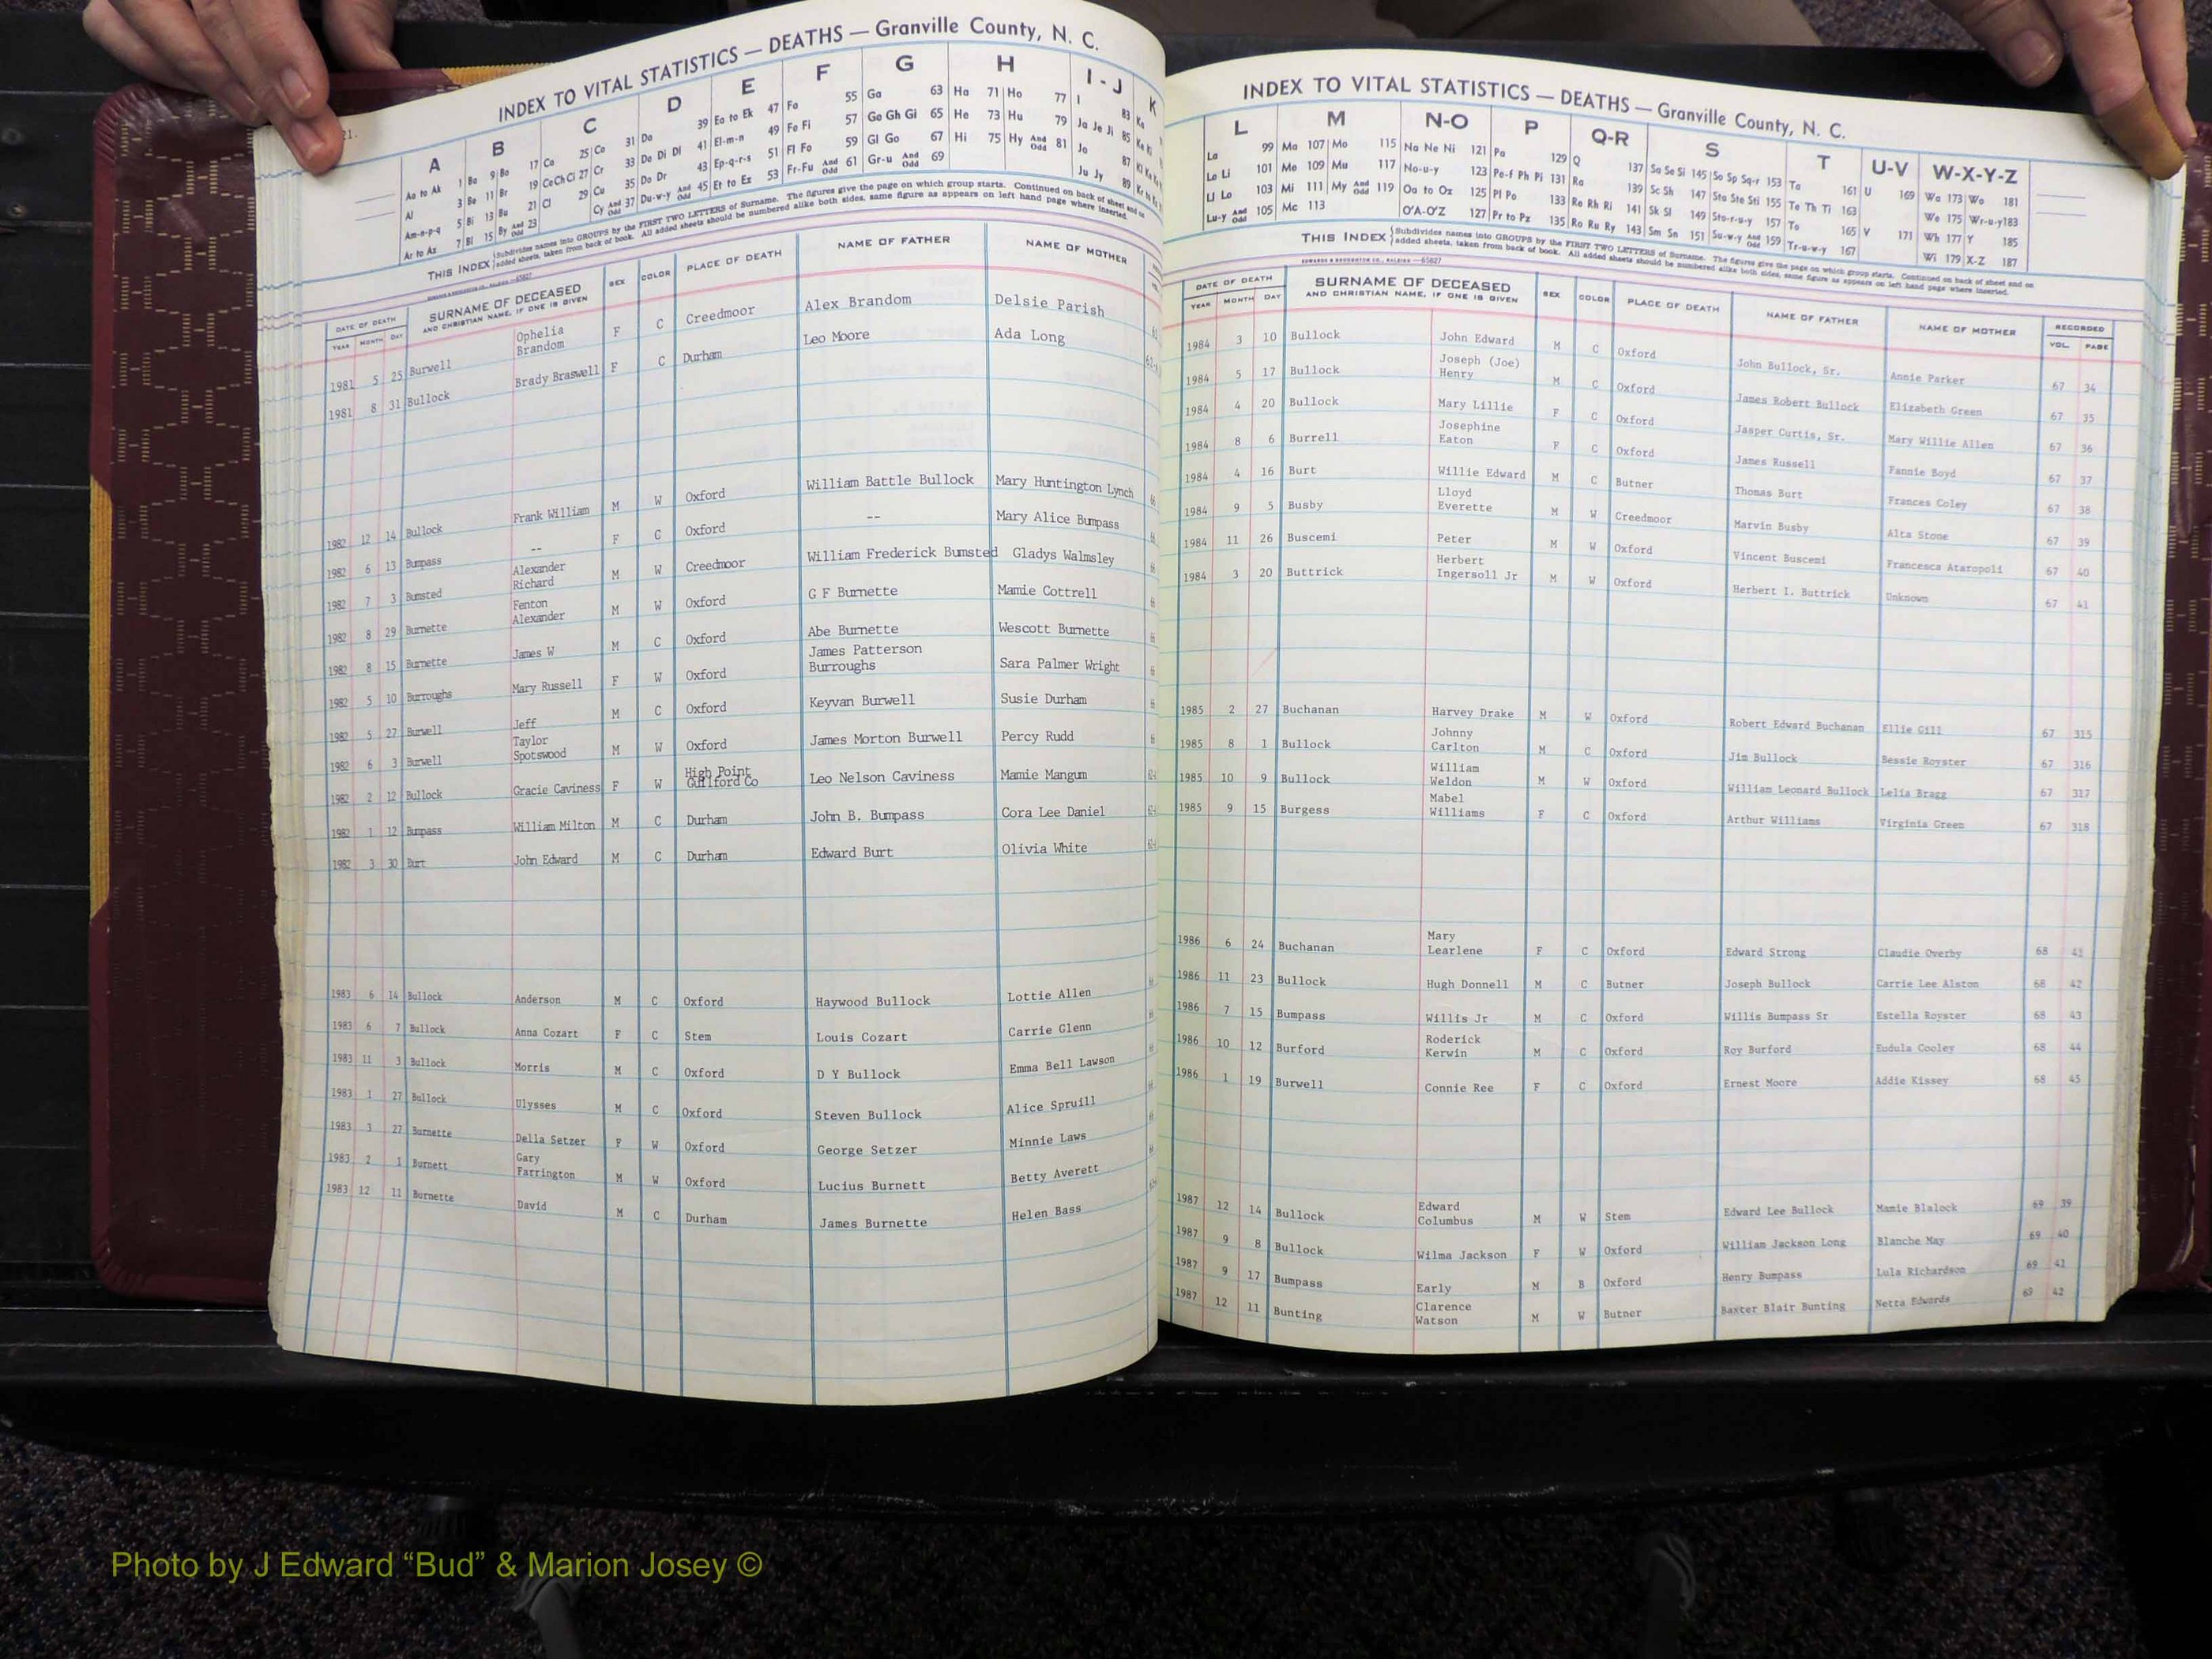 21.
INDEX TO VITAL STATISTICS — DEATHS — Granville County, N. C.
A B C D E F G H I - J K
Aa to Ak 1 Ba 9 Bo 17 Ca 25 Co 31 Da 39 Ea to Ek 47 Fa 55 Ga 63 Ha 71 Ho 77 I 83 Ka
Al 3 Be 11 Br 19 Ce Ch Ci 27 Cr 33 De Di Dl 41 El-m-n 49 Fe Fi 57 Ge Gh Gi 65 He 73 Hu 79 Ja Je Ji 85 Ke Ki
Am-n-p-q 5 Bi 13 Bu 21 Cl 29 Cu 35 Do Dr 43 Ep-q-r-s 51 Fl Fo 59 Gl Go 67 Hi 75 Hy And Odd 81 Jo 87
Ar to Az 7 Bl 15 By And Odd 23 Cy And Odd 37 Du-w-y And Odd 45 Et to Ez 53 Fr-Fu And Odd 61 Gr-u And Odd 69 Ju Jy 89
THIS INDEX Subdivides names into GROUPS by the FIRST TWO LETTERS of Surname. The figures give the page on which group starts. Continued on back of sheet and on
added sheets, taken from back of book. All added sheets should be numbered alike both sides, same figure as appears on left hand page where inserted.
DATE OF DEATH SURNAME OF DECEASED AND CHRISTIAN NAME, IF ONE IS GIVEN SEX COLOR PLACE OF DEATH NAME OF FATHER NAME OF MOTHER
YEAR MONTH DAY
1981 5 25 Burwell Ophelia Brandom F C Creedmoor Alex Brandom Delsie Parish
1981 8 31 Bullock Brady Braswell F C Durham Leo Moore Ada Long
1982 12 14 Bullock Frank William M W Oxford William Battle Bullock Mary Huntington Lynch
1982 6 13 Bumpass -- F C Oxford -- Mary Alice Bumpass
1982 7 3 Bumsted Alexander Richard M W Creedmoor William Frederick Bumsted Gladys Walmsley
1982 8 29 Burnette Fenton Alexander M W Oxford G F Burnette Mamie Cottrell
1982 8 15 Burnette James W M C Oxford Abe Burnette Wescott Burnette
1982 5 10 Burroughs Mary Russell F W Oxford James Patterson Burroughs Sara Palmer Wright
1982 5 27 Burwell Jeff M C Oxford Keyvan Burwell Susie Durham
1982 6 3 Burwell Taylor Spotswood M W Oxford James Morton Burwell Percy Rudd
1982 2 12 Bullock Gracie Caviness F W High Point Guilford Co Leo Nelson Caviness Mamie Mangum
1982 1 12 Bumpass William Milton M C Durham John B. Bumpass Cora Lee Daniel
1982 3 30 Burt John Edward M C Durham Edward Burt Olivia White
1983 6 14 Bullock Anderson M C Oxford Haywood Bullock Lottie Allen
1983 6 7 Bullock Anna Cozart F C Stem Louis Cozart Carrie Glenn
1983 11 3 Bullock Morris M C Oxford D Y Bullock Emma Bell Lawson
1983 1 27 Bullock Ulysses M C Oxford Steven Bullock Alice Spruill
1983 3 27 Burnette Della Setzer F W Oxford George Setzer Minnie Laws
1983 2 1 Burnett Gary Farrington M W Oxford Lucius Burnett Betty Averett
1983 12 11 Burnette David M C Durham James Burnette Helen Bass
INDEX TO VITAL STATISTICS — DEATHS — Granville County, N. C.
L M N-O P Q-R S T U-V W-X-Y-Z
La 99 Ma 107 Mo 115 Na Ne Ni 121 Pa 129 Q 137 Sa Se Si 145 So Sp Sq-r 153 Ta 161 U 169 Wa 173 Wo 181
Le Li 101 Me 109 Mu 117 No-u-y 123 Pe-f Ph Pi 131 Ra 139 Sc Sh 147 Sta Ste Sti 155 Te Th Ti 163 We 175 Wr-u-y 183
Ll Lo 103 Mi 111 My And Odd 119 Oa to Oz 125 Pl Po 133 Re Rh Ri 141 Sk Sl 149 Sto-r-u-y 157 To 165 V 171 Wh 177 Y 185
Lu-y And Odd 105 Mc 113 O'A-O'Z 127 Pr to Pz 135 Ro Ru Ry 143 Sm Sn 151 Su-w-y And Odd 159 Tr-u-w-y 167 Wi 179 X-Z 187
THIS INDEX Subdivides names into GROUPS by the FIRST TWO LETTERS of Surname. The figures give the page on which group starts. Continued on back of sheet and on
added sheets, taken from back of book. All added sheets should be numbered alike both sides, same figure as appears on left hand page where inserted.
DATE OF DEATH SURNAME OF DECEASED AND CHRISTIAN NAME, IF ONE IS GIVEN SEX COLOR PLACE OF DEATH NAME OF FATHER NAME OF MOTHER RECORDED
YEAR MONTH DAY VOL. PAGE
1984 3 10 Bullock John Edward M C Oxford John Bullock, Sr. Annie Parker 67 34
1984 5 17 Bullock Joseph (Joe) Henry M C Oxford James Robert Bullock Elizabeth Green 67 35
1984 4 20 Bullock Mary Lillie F C Oxford Jasper Curtis, Sr. Mary Willie Allen 67 36
1984 8 6 Burrell Josephine Eaton F C Oxford James Russell Fannie Boyd 67 37
1984 4 16 Burt Willie Edward M C Butner Thomas Burt Frances Coley 67 38
1984 9 5 Busby Lloyd Everette M W Creedmoor Marvin Busby Alta Stone 67 39
1984 11 26 Buscemi Peter M W Oxford Vincent Buscemi Francesca Ataropoli 67 40
1984 3 20 Buttrick Herbert Ingersoll Jr M W Oxford Herbert I. Buttrick Unknown 67 41
1985 2 27 Buchanan Harvey Drake M W Oxford Robert Edward Buchanan Ellie Gill 67 315
1985 8 1 Bullock Johnny Carlton M C Oxford Jim Bullock Bessie Royster 67 316
1985 10 9 Bullock William Weldon M W Oxford William Leonard Bullock Lelia Bragg 67 317
1985 9 15 Burgess Mabel Williams F C Oxford Arthur Williams Virginia Green 67 318
1986 6 24 Buchanan Mary Learlene F C Oxford Edward Strong Claudie Overby 68 41
1986 11 23 Bullock Hugh Donnell M C Butner Joseph Bullock Carrie Lee Alston 68 42
1986 7 15 Bumpass Willis Jr M C Oxford Willis Bumpass Sr Estella Royster 68 43
1986 10 12 Burford Roderick Kerwin M C Oxford Roy Burford Eudula Cooley 68 44
1986 1 19 Burwell Connie Ree F C Oxford Ernest Moore Addie Kissey 68 45
1987 12 14 Bullock Edward Columbus M W Stem Edward Lee Bullock Mamie Blalock 69 39
1987 9 8 Bullock Wilma Jackson F W Oxford William Jackson Long Blanche May 69 40
1987 9 17 Bumpass Early M B Oxford Henry Bumpass Lula Richardson 69 41
1987 12 11 Bunting Clarence Watson M W Butner Baxter Blair Bunting Netta Edwards 69 42
Photo by J Edward “Bud” & Marion Josey ©